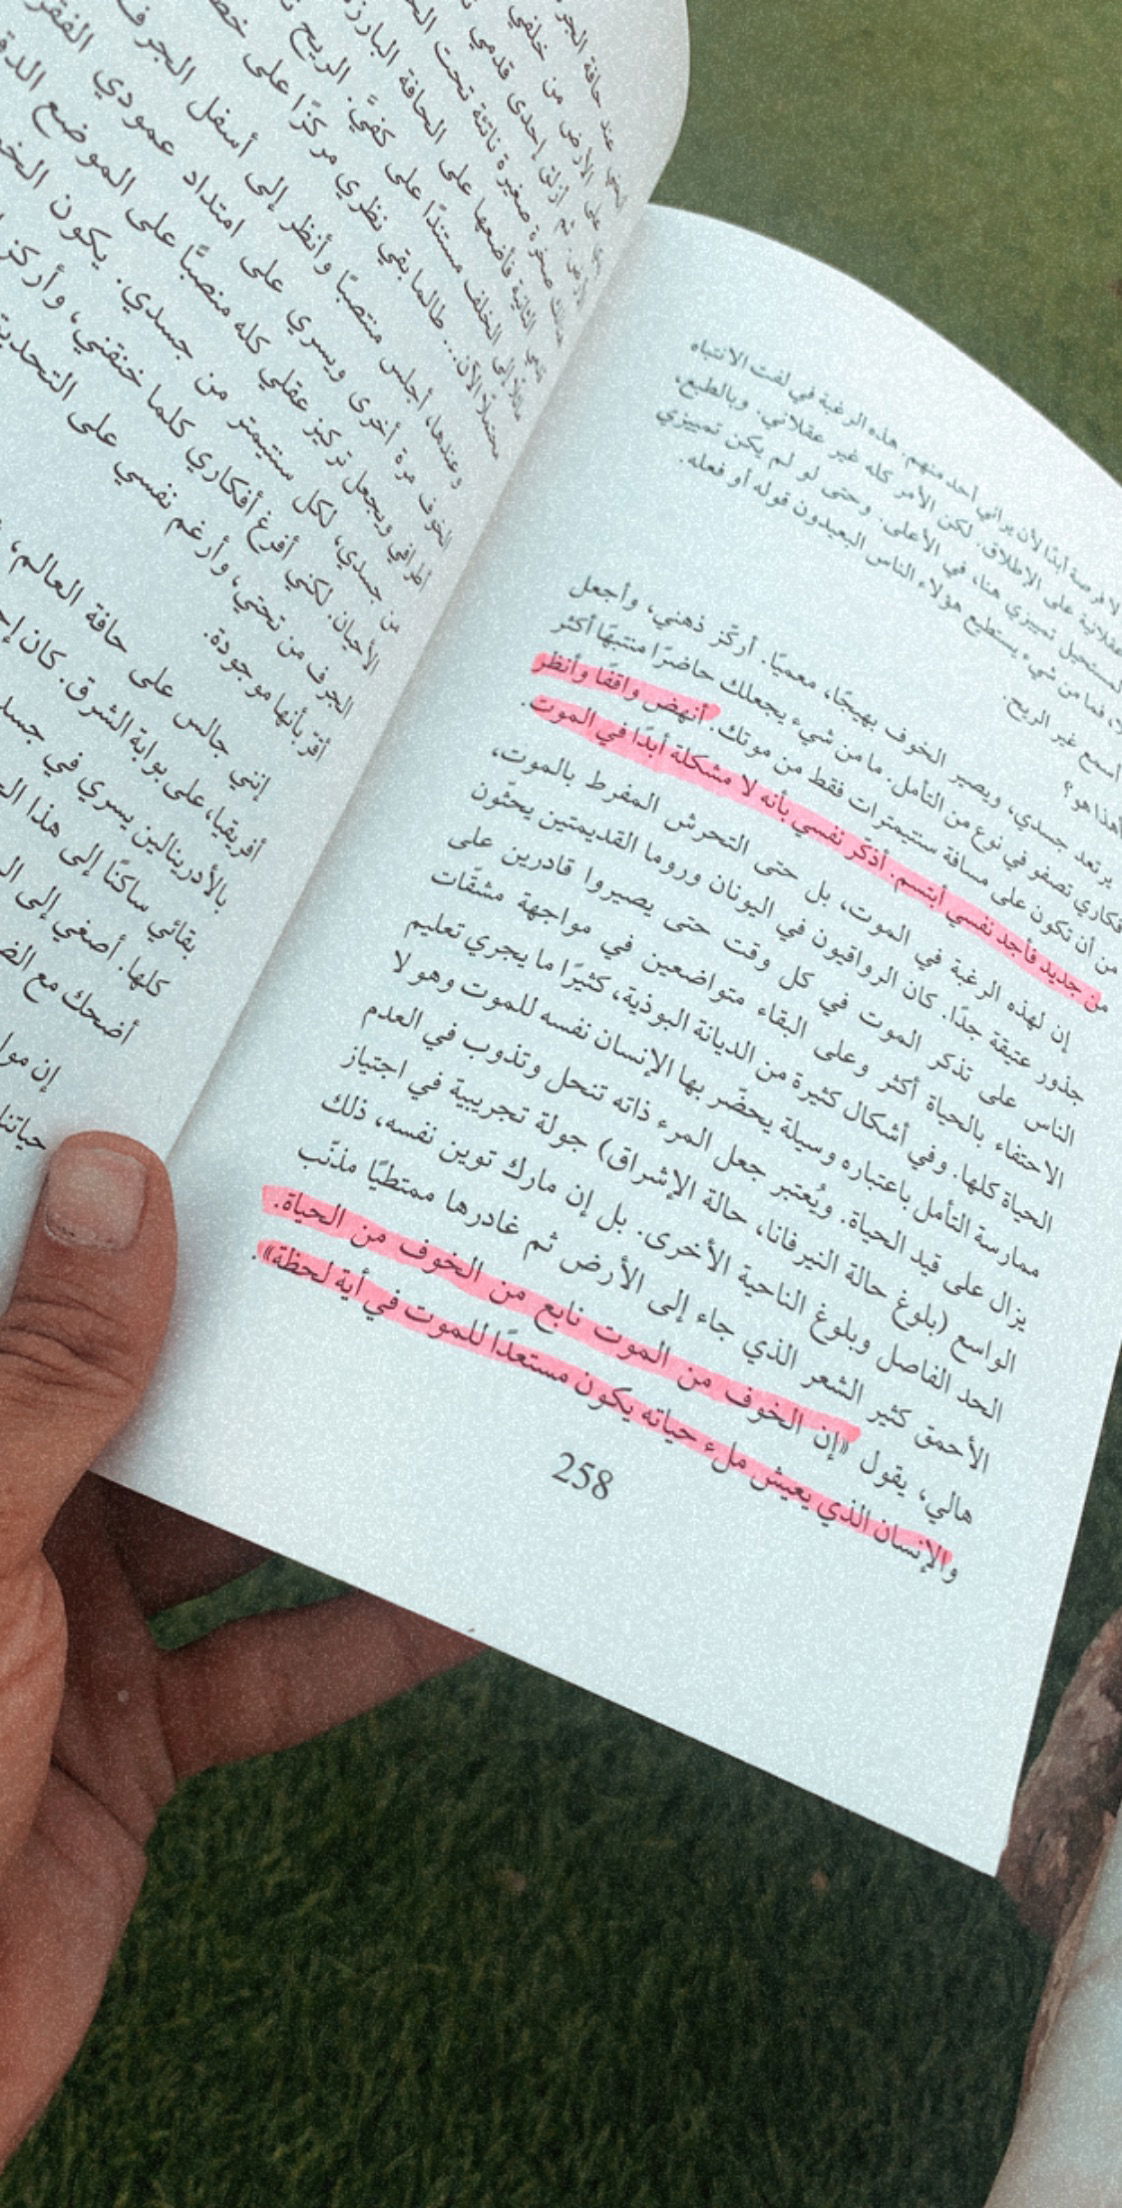 لا فرصة أبدًا لأن يراني أحد منهم. هذه الرغبة في لفت الانتباه
عقلانية على الإطلاق. لكن الأمر كله غير عقلاني. وبالطبع،
المستحيل تمييزي هنا، في الأعلى. وحتى لو لم يكن تمييزي
فما من شيء يستطيع هؤلاء الناس البعيدون قوله أو فعله.
أسمع غير الريح.
أهذا هو؟
يرتعد جسدي، ويصير الخوف بهيجًا، معميًا. أركّز ذهني، وأجعل
أفكاري تصفو في نوع من التأمل. ما من شيء يجعلك حاضرًا منتبهًا أكثر
من أن تكون على مسافة سنتيمترات فقط من موتك. أنهض واقفًا وأنظر
من جديد فأجد نفسي أبتسم. أذكّر نفسي بأنه لا مشكلة أبدًا في الموت.
إن لهذه الرغبة في الموت، بل حتى التحرش المفرط بالموت،
جذور عتيقة جدًا. كان الرواقيون في اليونان وروما القديمتين يحثّون
الناس على تذكر الموت في كل وقت حتى يصيروا قادرين على
الاحتفاء بالحياة أكثر وعلى البقاء متواضعين في مواجهة مشقّات
الحياة كلها. وفي أشكال كثيرة من الديانة البوذية، كثيرًا ما يجري تعليم
ممارسة التأمل باعتباره وسيلة يحضّر بها الإنسان نفسه للموت وهو لا
يزال على قيد الحياة. ويُعتبر جعل المرء ذاته تنحل وتذوب في العدم
الواسع (بلوغ حالة النيرفانا، حالة الإشراق) جولة تجريبية في اجتياز
الحد الفاصل وبلوغ الناحية الأخرى. بل إن مارك توين نفسه، ذلك
الأحمق كثير الشعر الذي جاء إلى الأرض ثم غادرها ممتطيًا مذنّب
هالي، يقول «إن الخوف من الموت نابع من الخوف من الحياة.
والإنسان الذي يعيش ملء حياته يكون مستعدًا للموت في أية لحظة».
258
عند حافة الجر
على الأرض من خلفي
ثم أزلق إحدى قدمي
صخرة صغيرة ناتئة تحت
الثانية فأضعها على الحافة البارز
إلى الخلف مستندًا على كفيَّ. الريح
محتملًا الآن... طالما بقي نظري مركزًا على
وعندها، أجلس منتصبًا وأنظر إلى أسفل الجرف
الخوف مرة أخرى ويسري على امتداد عمودي الفقر
أطرافي ويجعل تركيز عقلي كله منصبًّا على الموضع الدق
من جسدي، لكل سنتيمتر من جسدي. يكون الخو
الأحيان. لكني أفرغ أفكاري كلما خنقني، وأركز
الجرف من تحتي، وأرغم نفسي على التحدي
أقر بأنها موجودة.
إنني جالس على حافة العالم،
أفريقيا، على بوابة الشرق. كان إ
بالأدرينالين يسري في جسد
بقائي ساكنًا إلى هذا ال
كلها. أصغي إلى ال
أضحك مع
إن موا
حياتنا